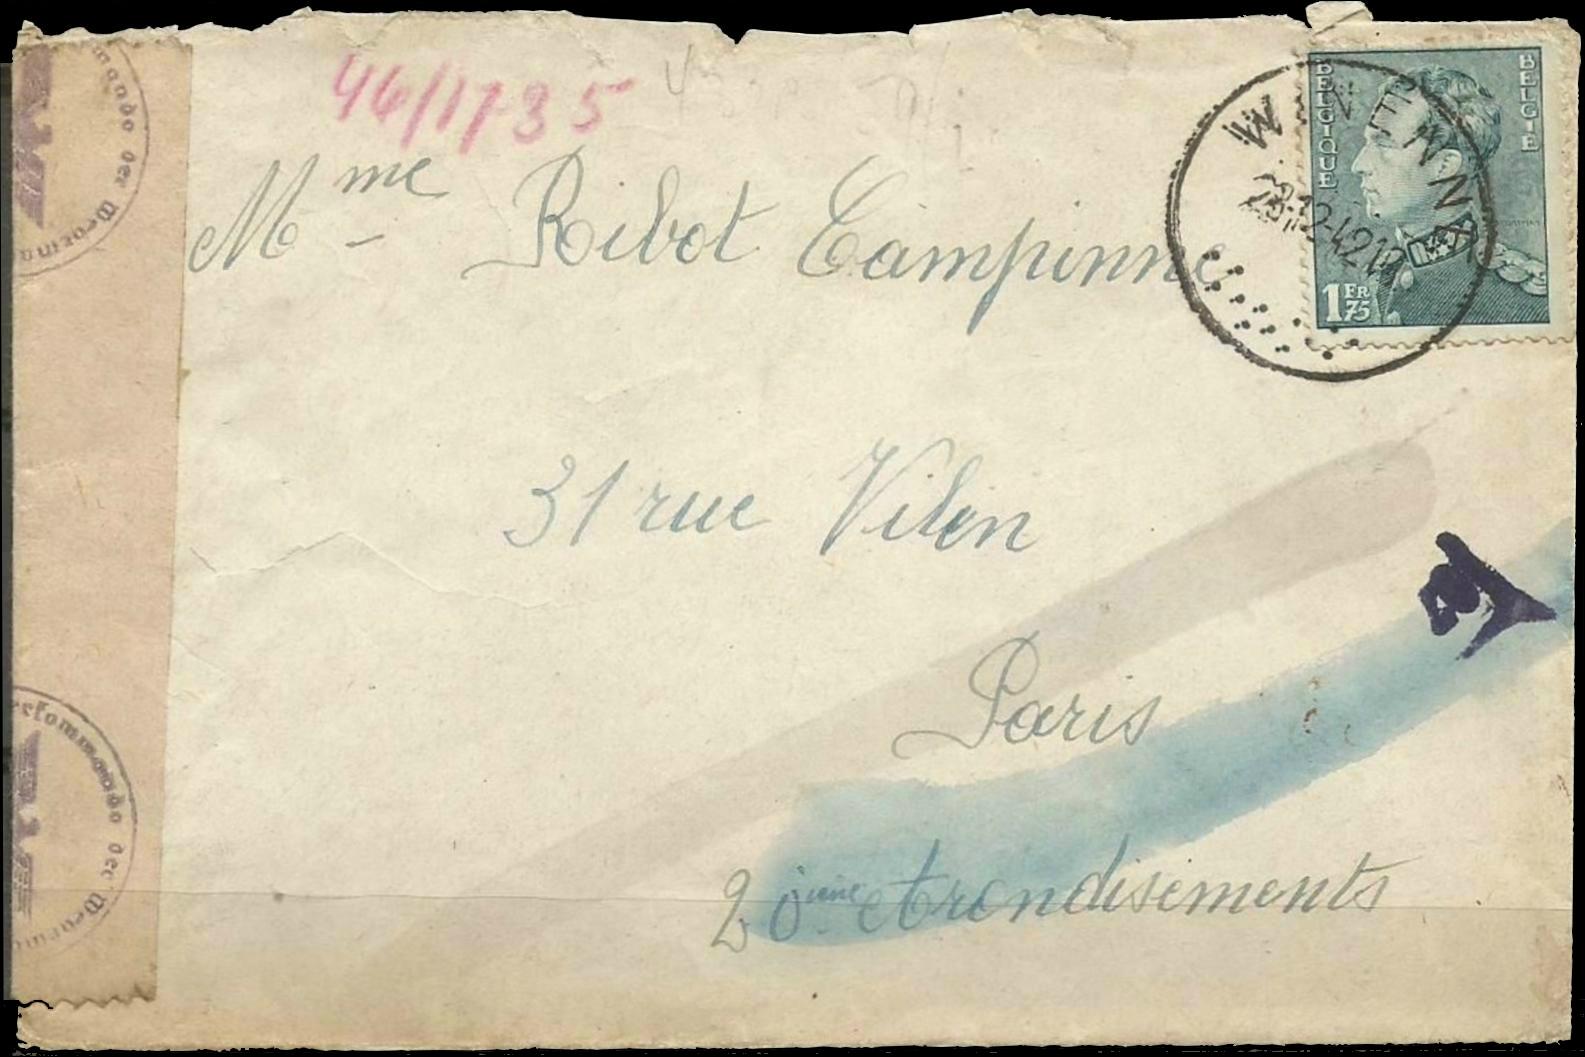 46/1735
Mme Ribot Campinne
31 rue Vilin
Paris
20ième Arrondisements
BELGIQUE
BELGIË
1 FR 75
WINENNE
12-42
der Wehrmac
erkommando der Wehrmac